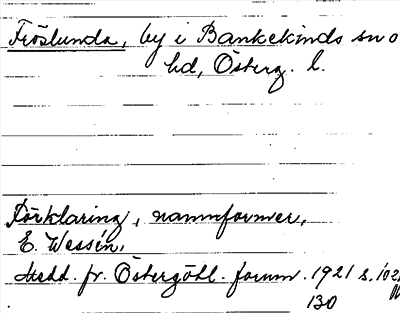 Fröslunda, by i Bankekinds sn o
hd, Österg. l.
Förklaring, namnformer,
E. Wessén,
Medd. fr. Östergötl. fornm. 1921 s. 102,
130